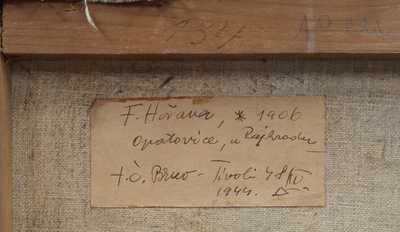 734
F. Hořava, * 1906
Opatovice, u Rajhradu
t.č. Brno - Tivoli 48
1944.